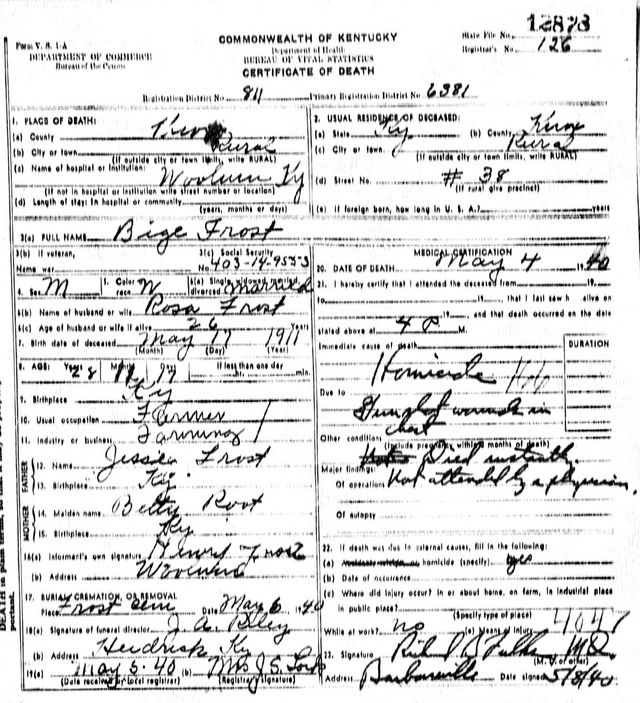 12873
Form V. S. 1-A
DEPARTMENT OF COMMERCE
Bureau of the Census
COMMONWEALTH OF KENTUCKY
Department of Health
BUREAU OF VITAL STATISTICS
CERTIFICATE OF DEATH
State File No.
Registrar's No. 126
Registration District No. 811 Primary Registration District No. 6381
1. PLACE OF DEATH:
(a) County Knox
(b) City or town Rural
(If outside city or town limits, write RURAL)
(c) Name of hospital or institution:
Woolum Ky
(If not in hospital or institution write street number or location)
(d) Length of stay: In hospital or community
(years, months or days)
2. USUAL RESIDENCE OF DECEASED:
(a) State Ky (b) County Knox
(c) City or town Rural
(If outside city or town limits, write RURAL)
(d) Street No. # 38
(If rural give precinct)
(e) If foreign born, how long in U. S. A.? years
3(a) FULL NAME Bige Frost
3(b) If veteran,
Name war
3(c) Social Security
No. 403-14-9553
4. Sex M 5. Color race W 6(a) Single, widowed, married, divorced Married
6(b) Name of husband or wife Rosa Frost
6(c) Age of husband or wife if alive 26 Years
7. Birth date of deceased May 17 1911
(Month) (Day) (Year)
8. AGE: Years 28 Months 11 Days 17 If less than one day
hr. min.
9. Birthplace Ky
10. Usual occupation Farmer
11. Industry or business Farming
FATHER
12. Name Jessie Frost
13. Birthplace Ky
MOTHER
14. Maiden name Betty Root
15. Birthplace Ky
16(a) Informant's own signature Henry Frost
(b) Address
17. BURIAL, CREMATION, OR REMOVAL
Place Frost Cem Date May 6 1940
18(a) Signature of funeral director
(b) Address Heidrick Ky
19(a) May 5-40 (b) Mrs J S
(Date received by local registrar) (Registrar's signature)
MEDICAL CERTIFICATION
20. DATE OF DEATH May 4 1940
21. I hereby certify that I attended the deceased from 19
to 19, that I last saw h alive on
19, and that death occurred on the date
stated above at 4 P M.
Immediate cause of death DURATION
Homicide
Due to
Gunshot wounds in
chest
Other conditions
(Include pregnancy within 3 months of death)
Died instantly.
Major findings:
Of operations Not attended by a physician.
Of autopsy
22. If death was due to external causes, fill in the following:
(a) homicide (specify) yes
(b) Date of occurrence
(c) Where did injury occur? In or about home, on farm, in industrial place
in public place?
(Specify type of place)
While at work? no (e) Means of injury
23. Signature M.D.
(M. D. or other)
Address Barbourville Date signed 5/8/40